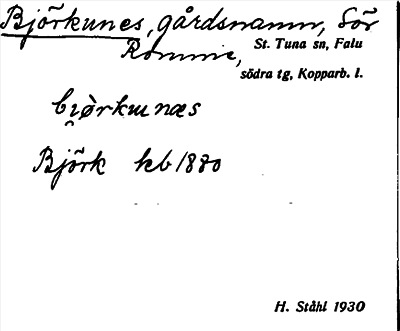 Björkunes, gårdsnamn, Sör
Rommie,
St. Tuna sn, Falu
södra tg, Kopparb. l.
bi̯ò̱rkunæs
Björk kb 1880
H. Ståhl 1930